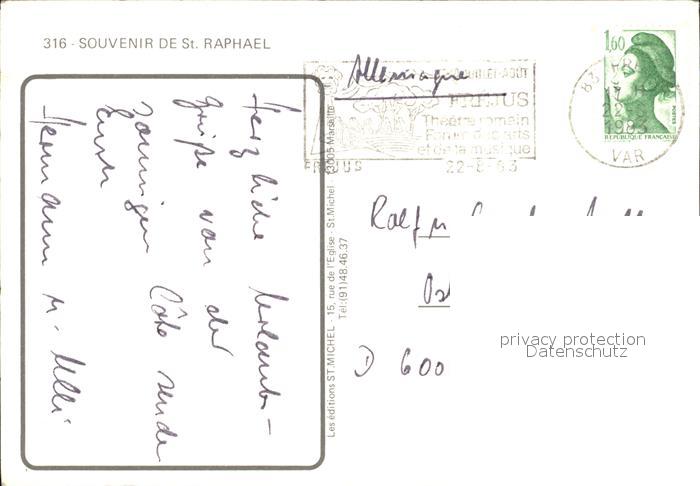 316 - SOUVENIR DE St. RAPHAEL
Allemagne
JUILLET-AOUT
FREJUS
Théâtre romain
Forum des arts
et de la musique
FREJUS 22-8-83
1,60
POSTES
REPUBLIQUE FRANÇAISE
83 FREJUS
22-8
1983
VAR
Herzliche Urlaubs-
grüße von der
sonnigen Côte sende
Euch
Hermann u. Ulli
Les éditions ST. MICHEL - 15, rue de l'Eglise - St. Michel - 13005 Marseille
Tél: (91) 48.46.37
Ralf u.
D 600
privacy protection
Datenschutz